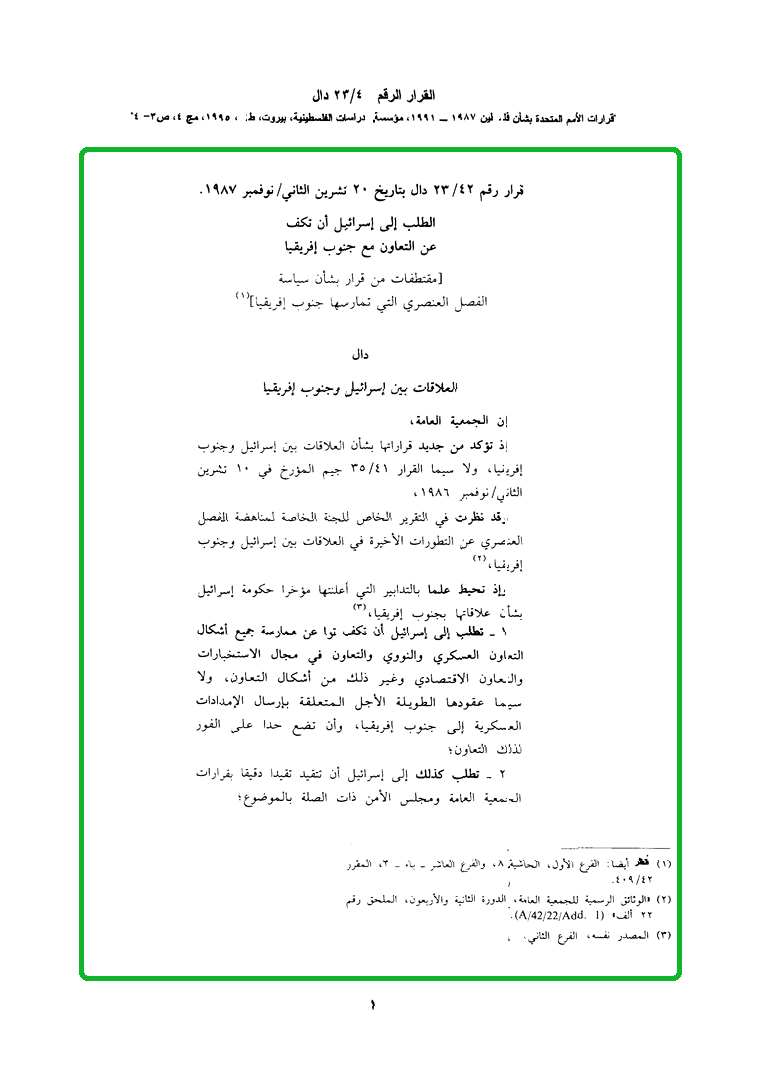 القرار الرقم ٢٣/٤ دال
قرارات الأمم المتحدة بشأن لين ١٩٨٧ ــ ١٩٩١، مؤسسة دراسات الفلسطينية، بيروت، ط ، ١٩٩٥، مج ٤، ص٣- ٤
قرار رقم ٢٣/٤٢ دال بتاريخ ٢٠ تشرين الثاني/نوفمبر ١٩٨٧.
الطلب إلى إسرائيل أن تكف
عن التعاون مع جنوب إفريقيا
[مقتطفات من قرار بشأن سياسة
الفصل العنصري التي تمارسها جنوب إفريقيا](١)
دال
العلاقات بين إسرائيل وجنوب إفريقيا
إن الجمعية العامة،
إذ تؤكد من جديد قراراتها بشأن العلاقات بين إسرائيل وجنوب
إفريقيا، ولا سيما القرار ٣٥/٤١ جيم المؤرخ في ١٠ تشرين
الثاني/نوفمبر ١٩٨٦،
وقد نظرت في التقرير الخاص للجنة الخاصة لمناهضة الفصل
العنصري عن التطورات الأخيرة في العلاقات بين إسرائيل وجنوب
إفريقيا،(٢)
وإذ تحيط علما بالتدابير التي أعلنتها مؤخرا حكومة إسرائيل
بشأن علاقاتها بجنوب إفريقيا،(٣)
١ ـ تطلب إلى إسرائيل أن تكف توا عن ممارسة جميع أشكال
التعاون العسكري والنووي والتعاون في مجال الاستخبارات
والتعاون الاقتصادي وغير ذلك من أشكال التعاون، ولا
سيما عقودها الطويلة الأجل المتعلقة بإرسال الإمدادات
العسكرية إلى جنوب إفريقيا، وأن تضع حدا على الفور
لذلك التعاون؛
٢ ـ تطلب كذلك إلى إسرائيل أن تتقيد تقيدا دقيقا بقرارات
الجمعية العامة ومجلس الأمن ذات الصلة بالموضوع؛
(١) أيضا: الفرع الأول، الحاشية ٨، والفرع العاشر ـ باء ـ ٣، المقرر
٤٠٩/٤٢.
(٢) «الوثائق الرسمية للجمعية العامة، الدورة الثانية والأربعون، الملحق رقم
٢٢ ألف» (A/42/22/Add. 1).
(٣) المصدر نفسه، الفرع الثاني.
١